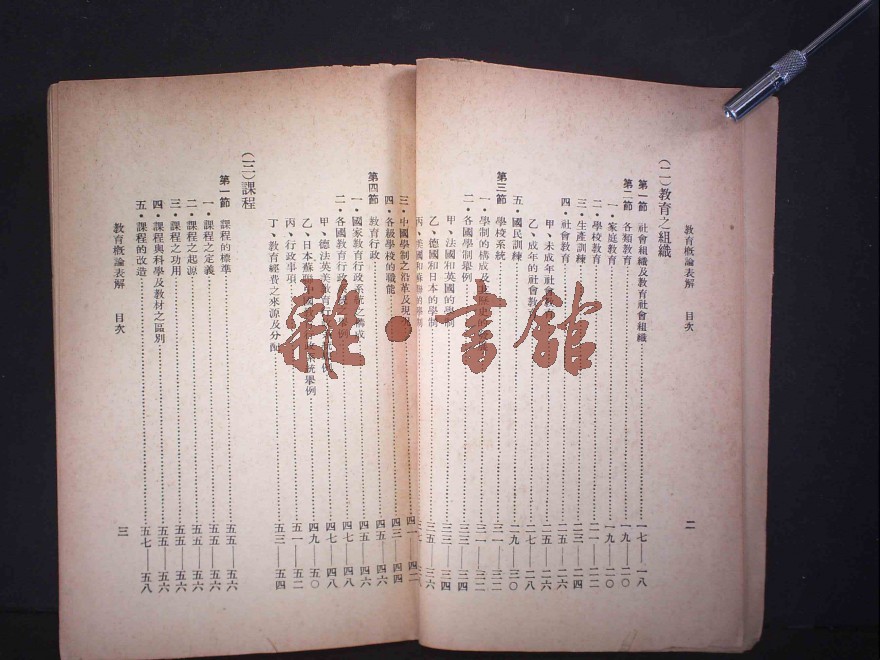 教育概論表解 目次 二
（二）教育之組織
第一節 社會組織及教育社會組織 一七—一八
第二節 各類教育 一九—二〇
一・家庭教育 一九—二〇
二・學校教育 二一—二二
三・生產訓練 二三—二四
四・社會教育 二五—二六
甲、未成年社會教 二五—二六
乙、成年的社會教 二七—二八
五 國民訓練 二九—三〇
第三節 學校系統 三一—三二
一・學制的構成及 三一—三二
二・各國學制舉例 三三—三四
甲、法國和英國的學制 三三—三四
乙、德國和日本的學制 三五—三六
國和蘇聯的學制
三・中國學制之沿革及現 四一—四二
四・各級學校的職能 四三—四四
第四節 教育行政 四五—四六
一・國家教育行政系統之構成 四五—四六
二・各國教育行政 例 四七—四八
甲、德法英美教育 例 四七—四八
乙、日本蘇聯 統舉例 四九—五〇
丙、行政事項 五一—五二
丁、教育經費之來源及分配 五三—五四
（三）課程
第一節 課程的標準 五五—五六
一・課程之定義 五五—五六
二・課程之起源 五五—五六
三・課程之功用 五五—五六
四・課程與科學及教材之區別 五五—五六
五・課程的改造 五七—五八
教育概論表解 目次 三
雜・書館